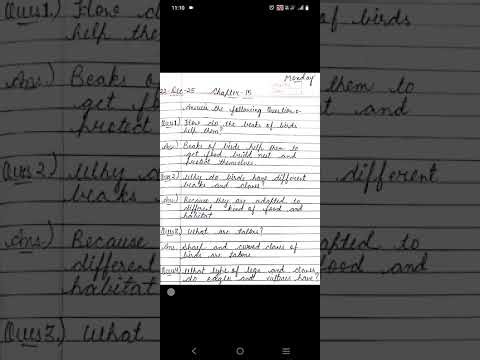 11:10
Monday
22-Dec-25 Chapter-15
Answer the following Questions:-
Ques1.) How do the beaks of birds
help them?
Ans.) Beaks of birds help them to
get food build nest and
protect themselves.
Ques2.) Why do birds have different
beaks and claws?
Ans.) Because they are adapted to
different kind of food and
habitat.
Ques3.) What are talons?
Ans. Sharp and curved claws of
birds are talons.
Ques4.) What type of legs and claws
do eagles and vultures have?
Ques1.) How d
of birds
help them
Ans.) Beaks o
them to
get f
and
protect
Ques2.) Why
different
beaks
Ans.) Because
adapted to
different
food and
habitat
Ques3.) What